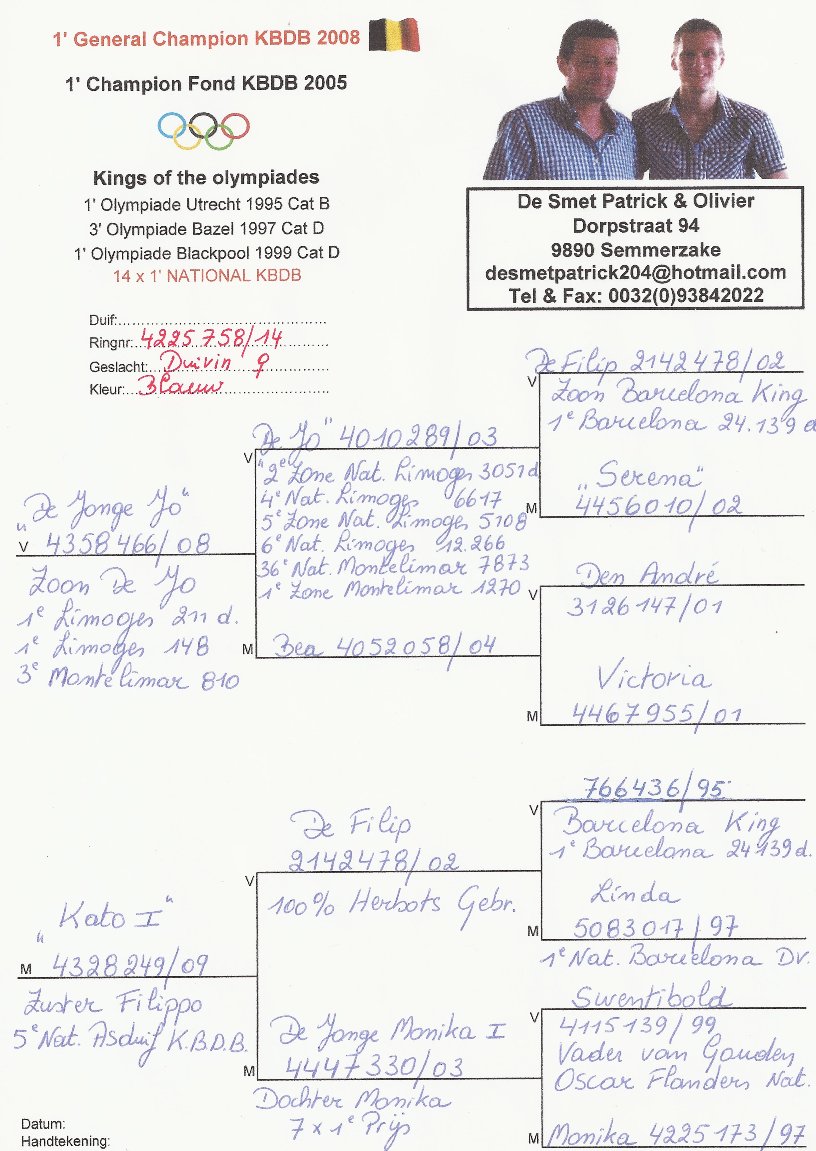 1' General Champion KBDB 2008
1' Champion Fond KBDB 2005
Kings of the olympiades
1' Olympiade Utrecht 1995 Cat B
3' Olympiade Bazel 1997 Cat D
1' Olympiade Blackpool 1999 Cat D
14 x 1' NATIONAL KBDB
De Smet Patrick & Olivier
Dorpstraat 94
9890 Semmerzake
desmetpatrick204@hotmail.com
Tel & Fax: 0032(0)93842022
Duif:
Ringnr: 4225758/14
Geslacht: Duivin ♀
Kleur: Blauw
"De Jonge Jo"
V 4358466/08
Zoon De Jo
1e Limoges 211 d.
1e Limoges 148
3e Montelimar 810
"De Jo" 4010289/03
V
2e Zone Nat. Limoges 3051 d
4e Nat. Limoges 6617
5e Zone Nat. Limoges 5108
6e Nat. Limoges 12.266
36e Nat. Montelimar 7873
1e Zone Montelimar 1270
M Bea 4052058/04
De Filip 2142478/02
V
Zoon Barcelona King
1e Barcelona 24.139 d
"Serena"
M 4456010/02
Den André
V
3126147/01
Victoria
M 4467955/01
"Kato I"
M 4328249/09
Zuster Filippo
5e Nat. Asduif K.B.D.B.
De Filip
2142478/02
V
100% Herbots Gebr.
De Jonge Monika I
M 4447330/03
Dochter Monika
7 x 1e Prijs
766436/95
V
Barcelona King
1e Barcelona 24139 d.
Linda
M 5083017/97
1e Nat. Barcelona Dv.
Swentibold
V
4115139/99
Vader van Gouden
Oscar Flanders Nat.
M Monika 4225173/97
Datum:
Handtekening: